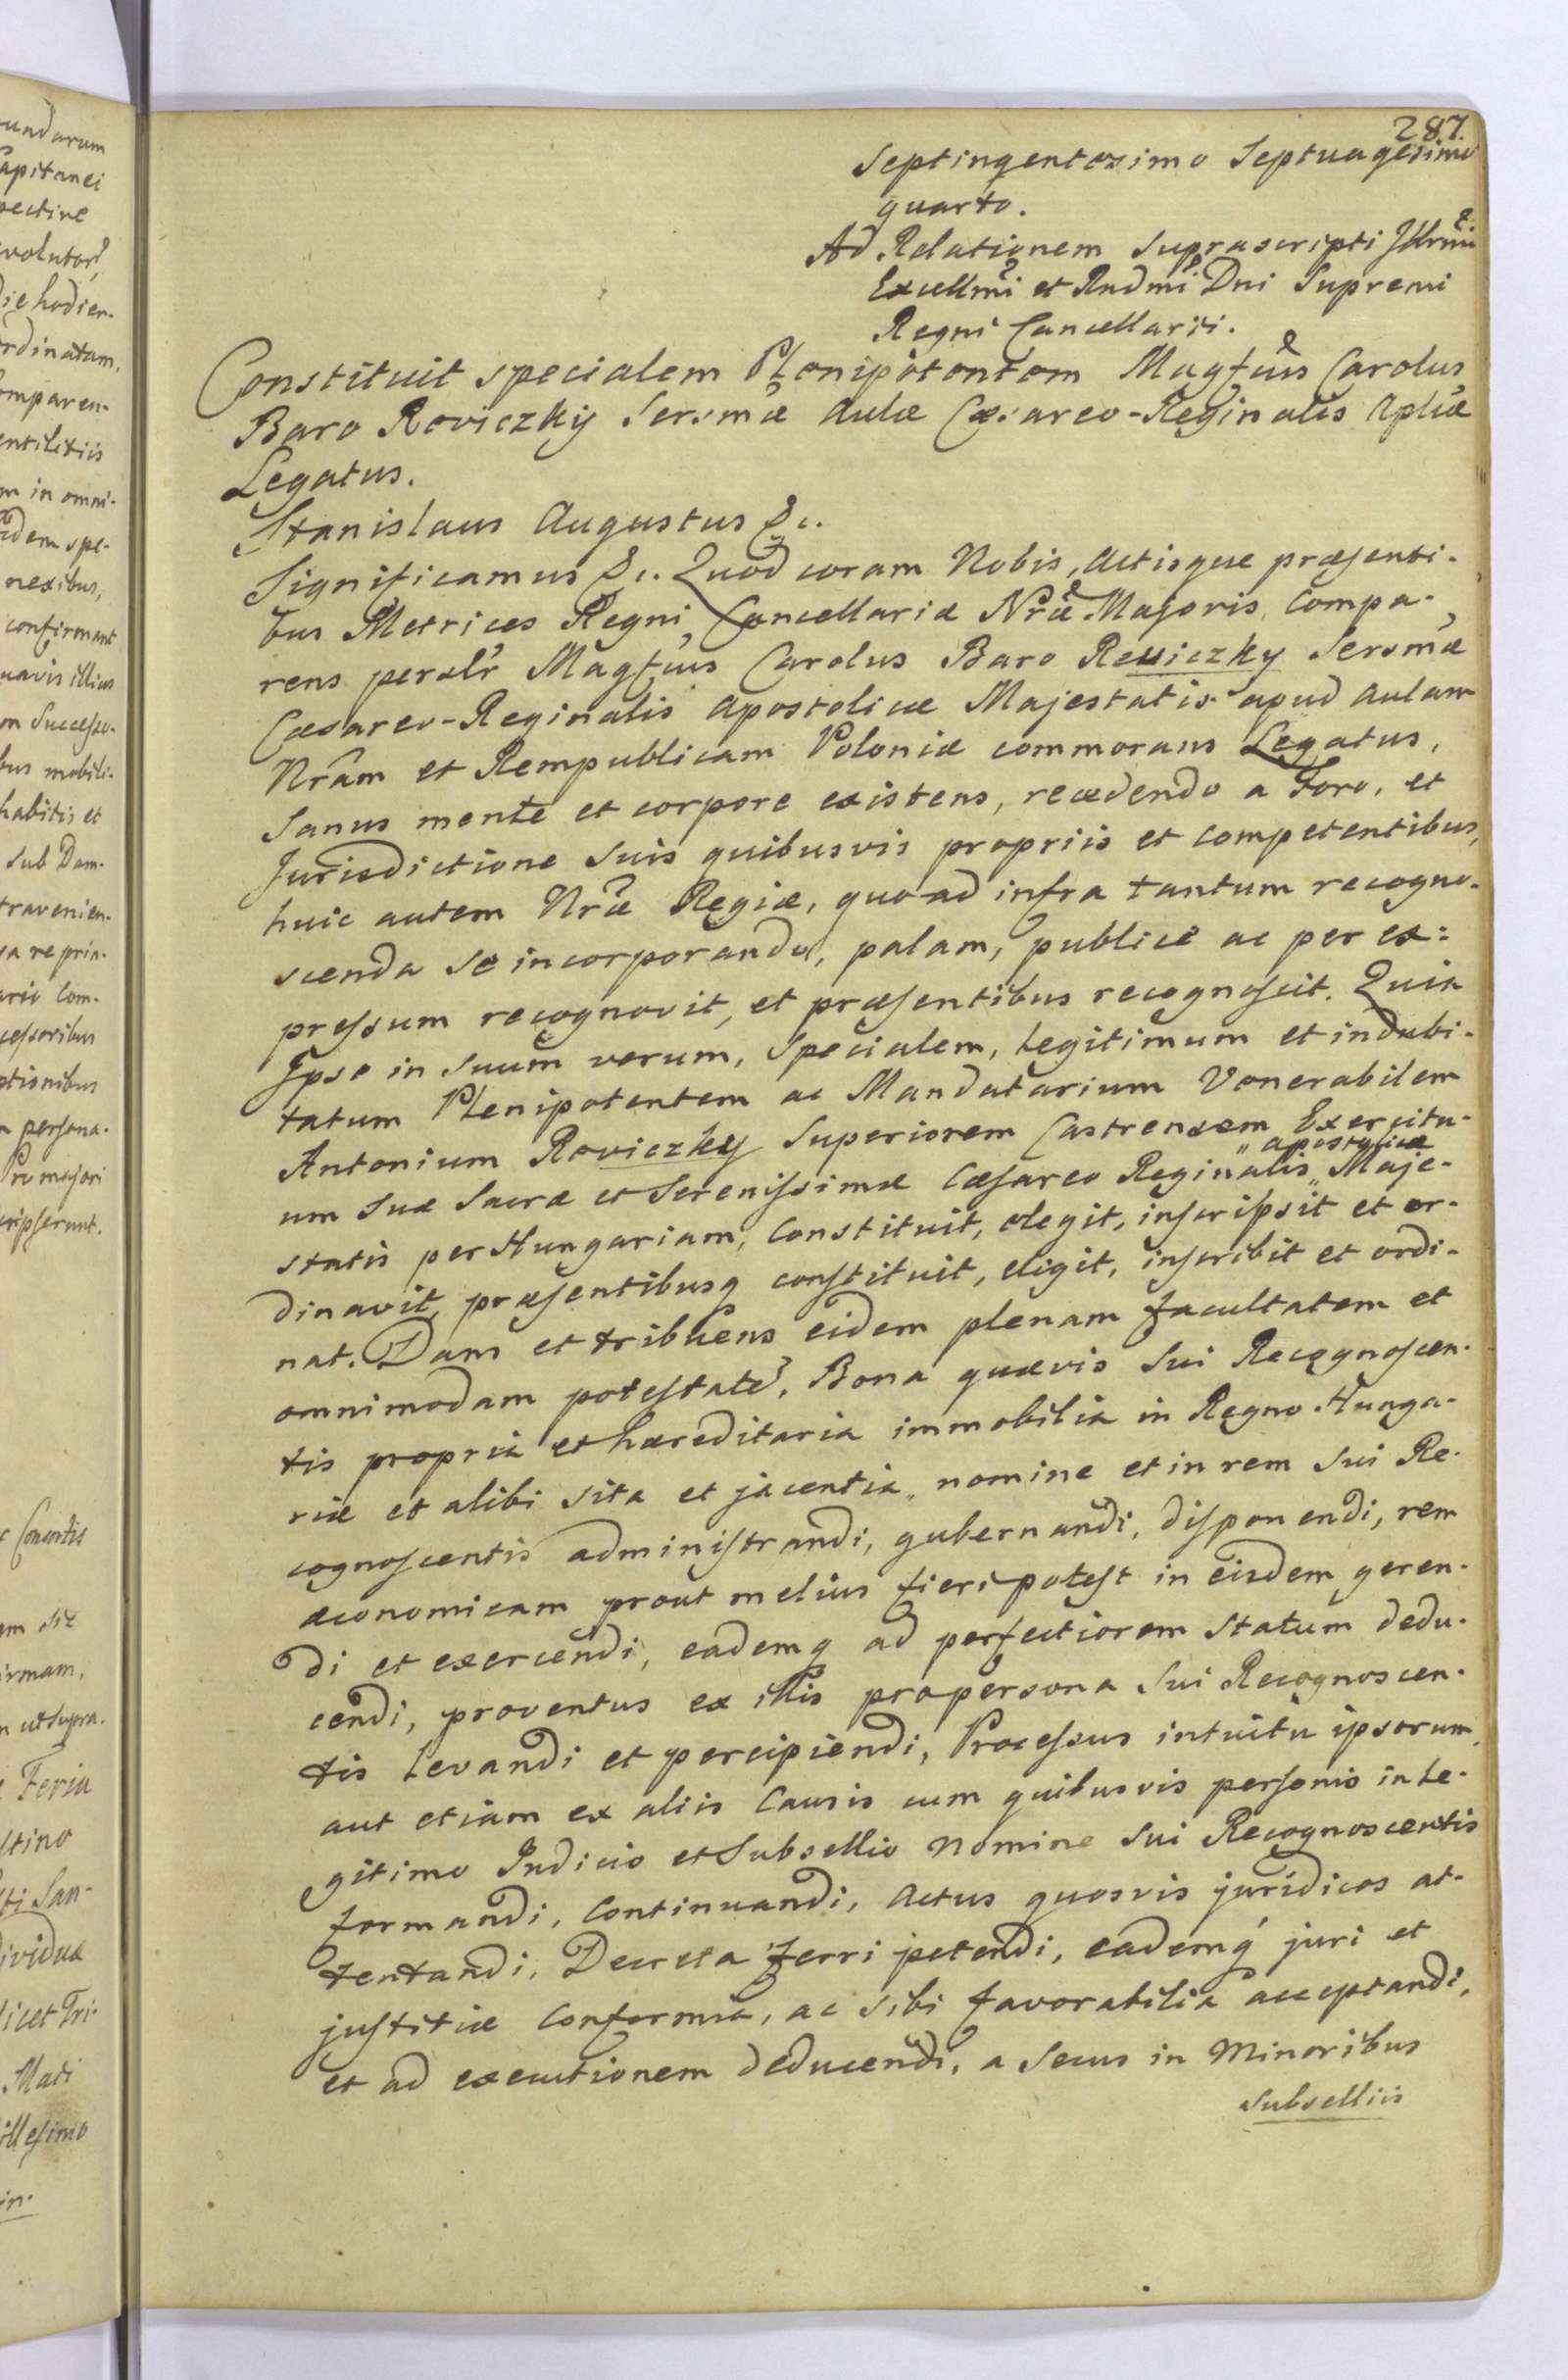 287.
Septingentesimo Septuagesimo
quarto.
Ad Relationem Suprascripti Illrmi
Excellmi et Rndmi Dni Supremi
Regni Cancellarii.
Constituit specialem Plenipotentem Magfus Carolus
Baro Reviczky Sersmæ Aulæ Cæsareo-Reginalis Aplicæ
Legatus.
Stanislaus Augustus &c.
Significamus &c. Quod coram Nobis, Actisque præsenti-
bus Metrices Regni, Cancellariæ Nræ Majoris compa-
rens perslr Magfus Carolus Baro Reviczky Sersmæ
Cæsareo-Reginalis Apostolicæ Majestatis apud Aulam
Nram et Rempublicam Poloniæ commorans Legatus,
Sanus mente et corpore existens, recedendo a Foro, et
Jurisdictione suis quibusvis propriis et competentibus,
huic autem Nræ Regiæ, quoad infra tantum recogno-
scenda se incorporando, palam, publice ac per ex:
pressum recognovit, et præsentibus recognoscit. Quia
Ipse in suum verum, Specialem, legitimum et indubi-
tatum Plenipotentem ac Mandatarium Venerabilem
Antonium Reviczky Superiorem Castrensem Exercitu-
um Suæ Sacræ et Serenissimæ Cæsareo Reginalis „apostolicæ„ Maje-
statis per Hungariam, Constituit, elegit, inscripsit et or-
dinavit, præsentibusq constituit, eligit, inscribit et ordi-
nat. Dans et tribuens eidem plenam facultatem et
omnimodam potestate, Bona quævis sui Recognoscen-
tis propria et hæreditaria immobilia in Regno Hunga-
riæ et alibi sita et jacentia, nomine et in rem sui Re-
cognoscentis administrandi, gubernandi, disponendi, rem
æconomicam prout melius fieri potest in eisdem geren-
di et exercendi, eademq ad perfectiorem statum dedu-
cendi, proventus ex illis pro persona sui Recognoscen-
tis levandi et percipiendi, Processus intuitu ipsorum,
aut etiam ex aliis Causis cum quibusvis personis in le-
gitimo Judicio et Subsellio nomine sui Recognoscentis
formandi, Continuandi, Actus quosvis juridicos at-
tentandi, Decreta ferri petendi, eademq juri et
justitiæ conformia, ac sibi favorabilia acceptandi,
et ad executionem deducendi, a secus in Minoribus
subselliis
undarum
apitanei
pective
die hodier-
rdinatam,
omparen-
entilitiis
m in omni-
dem spe-
nexibus,
confirmant
uavis illius
on Successo-
bus mobili-
habitis et
sub Dam-
travenien-
com-
cessoribus
ptionibus
persona-
majori
cripserunt.
irmam,
ut supra.
Feria
San-
ividua
licet Tri-
illesimo